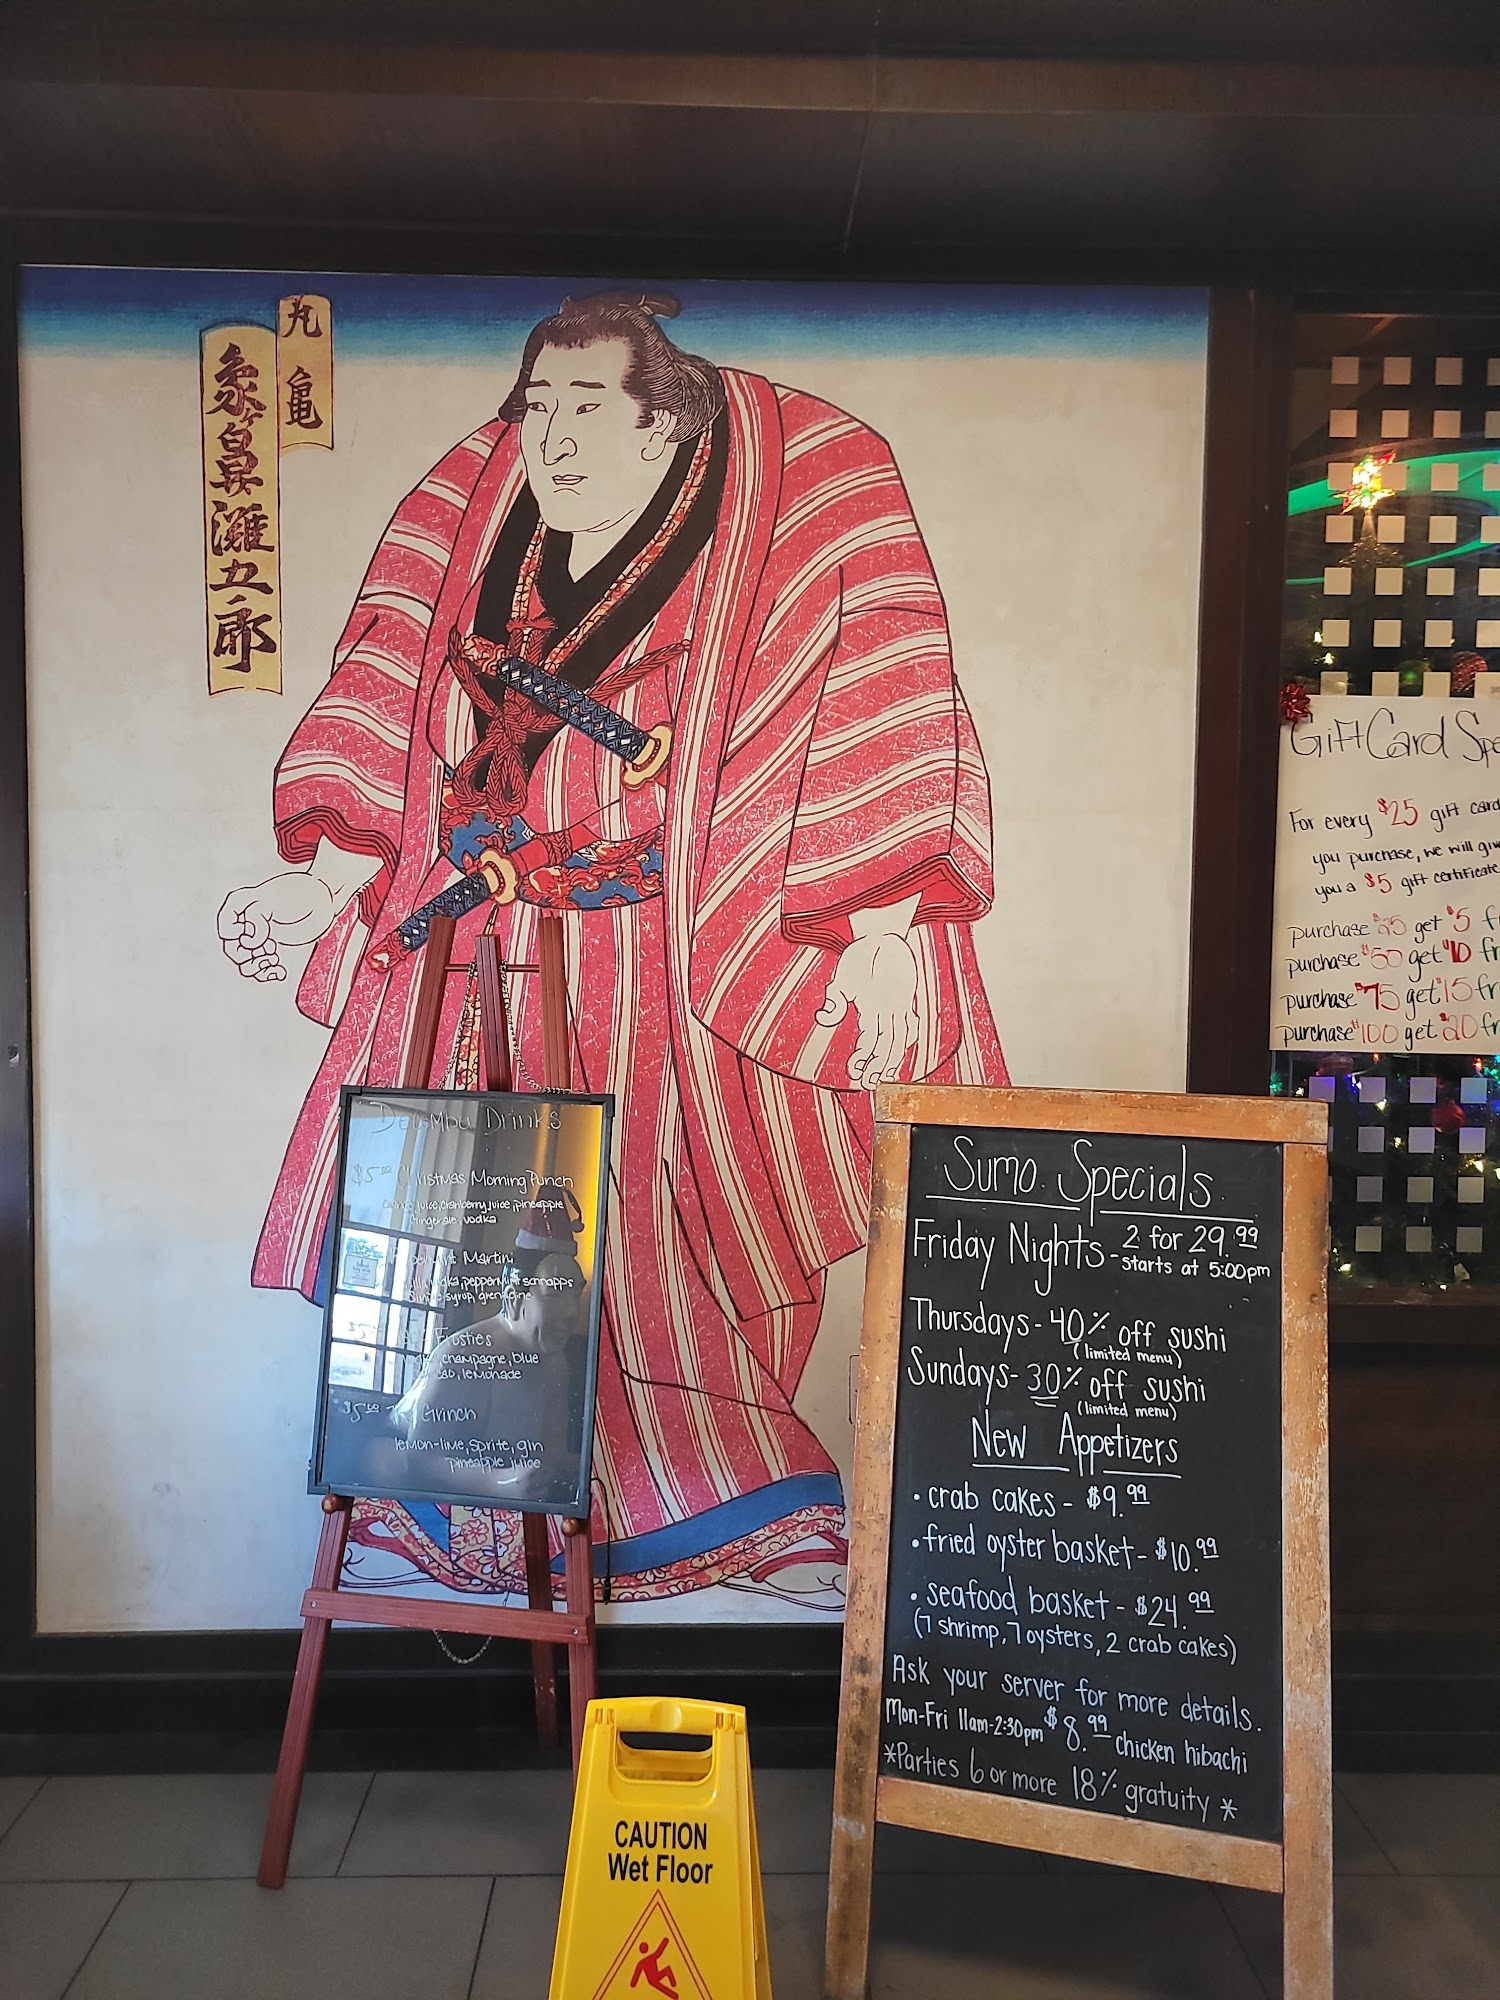 丸亀
象鼻灘五郎
December Drinks
$5.00 Christmas Morning Punch
juice, cranberry juice, pineapple
Gingerale, vodka
Martini
peppermint schnapps
syrup, grenadine
Frosties
champagne, blue
lemonade
$5.00 Grinch
lemon-lime, sprite, gin
pineapple juice
Sumo Specials
Friday Nights - 2 for 29.99
starts at 5:00pm
Thursdays - 40% off sushi
(limited menu)
Sundays - 30% off sushi
(limited menu)
New Appetizers
• crab cakes - $9.99
• fried oyster basket - $10.99
• seafood basket - $24.99
(7 shrimp, 7 oysters, 2 crab cakes)
Ask your server for more details.
Mon-Fri 11am-2:30pm $8.99 chicken hibachi
*Parties 6 or more 18% gratuity *
Gift Card Spe
For every $25 gift card
you purchase, we will give
you a $5 gift certificate
purchase $25 get $5 fr
purchase $50 get $10 fr
purchase $75 get $15 fr
purchase $100 get $20 fr
CAUTION
Wet Floor